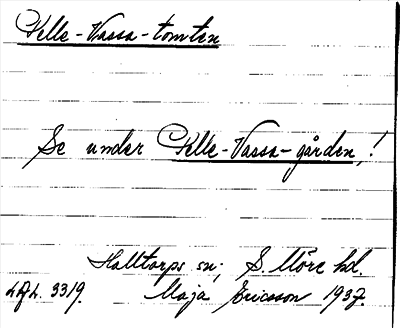 Pelle-Vassa-tomten
Se under Pelle-Vassa-gården!
Halltorps sn; S. Möre hd.
LAL. 3319. Maja Ericsson 1937.